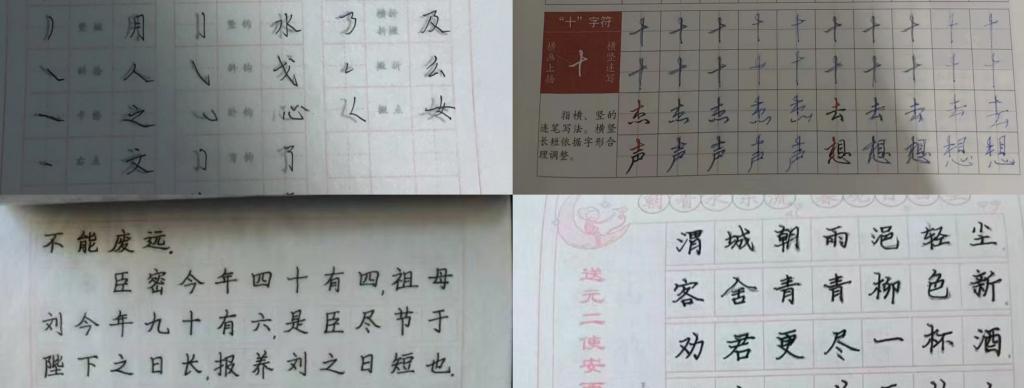 竖撇 用 竖钩 水 横折折撇 及
斜捺 人 斜钩 戈 撇折 么
平捺 之 卧钩 心 撇点 女
右点 文 弯钩 了
“十”字符
横画上扬
十
横竖连写
十十十十十十十十十十
十十十十十十十十十十
指横、竖的
连笔写法。横竖
长短依据字形合
理调整。
杰杰杰杰杰去去去去去
声声声声声想想想想想
不能废远.
臣密今年四十有四,祖母
刘今年九十有六,是臣尽节于
陛下之日长,报养刘之日短也.
朝看水东流
送元二使安西
渭城朝雨浥轻尘
客舍青青柳色新.
劝君更尽一杯酒